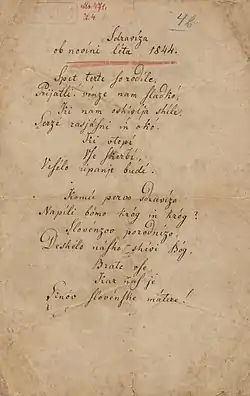 Ms 471,
II.4
46
Sdraviza
ob novini léta 1844.
Spet terte so rodile,
Prijatli vinze nam sladkó,
Ki nam oshivlja shile
Serzé rasjásni in oko.
Ki otopi
Vse skerbi,
Veselo upanje budi.
Komú pervo sdravizo
Napili bómo króg in króg?
Slovenzov porodnizo,
Deshélo násho shivi Bóg,
Brate vse,
Kar nas je
Sinóv slovénshe mátere!